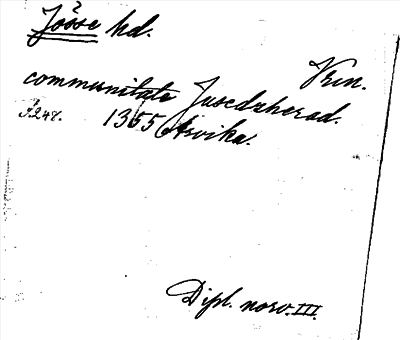 Jösse hd.
Vrm.
communitate Jusedzherad.
S. 247. 1355 Arvika.
Dipl. norv. III.